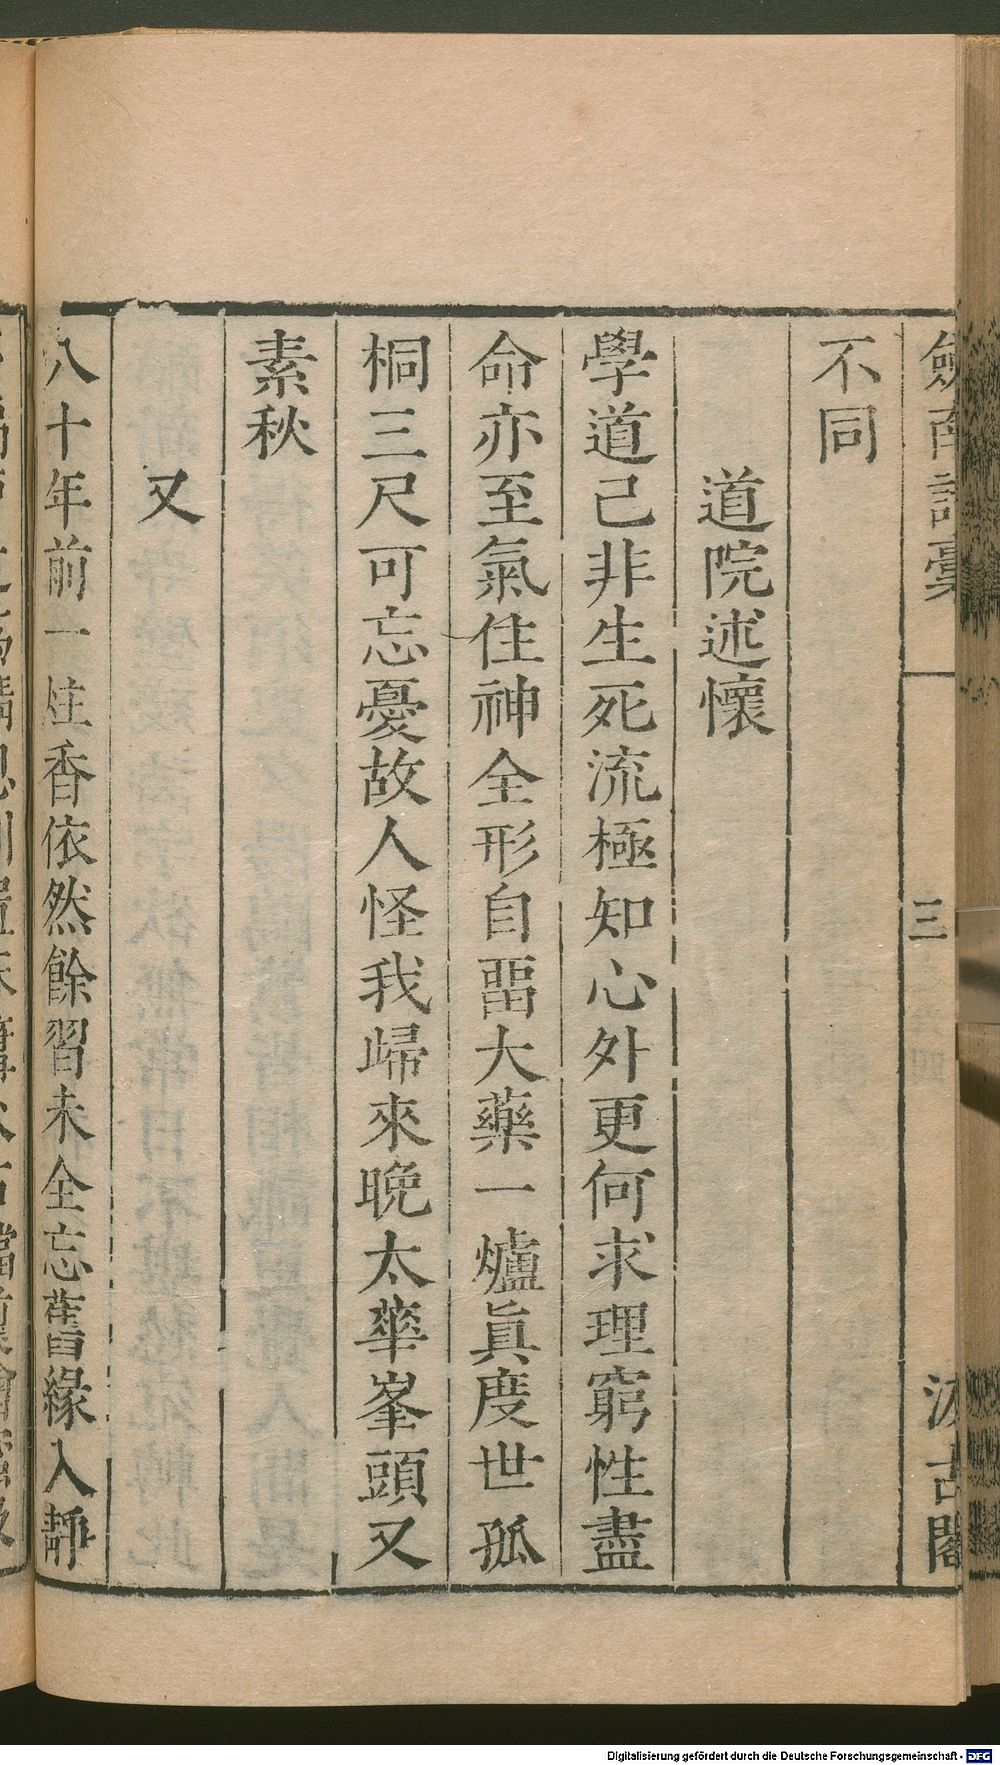 劒南詩稾 三 汲古閣
不同
道院述懷
學道己非生死流極知心外更何求理窮性盡
命亦至氣住神全形自畱大藥一爐眞度世孤
桐三尺可忘憂故人怪我歸來晚太華峯頭又
素秋
又
八十年前一炷香依然餘習未全忘舊緣入靜
Digitalisierung gefördert durch die Deutsche Forschungsgemeinschaft - DFG